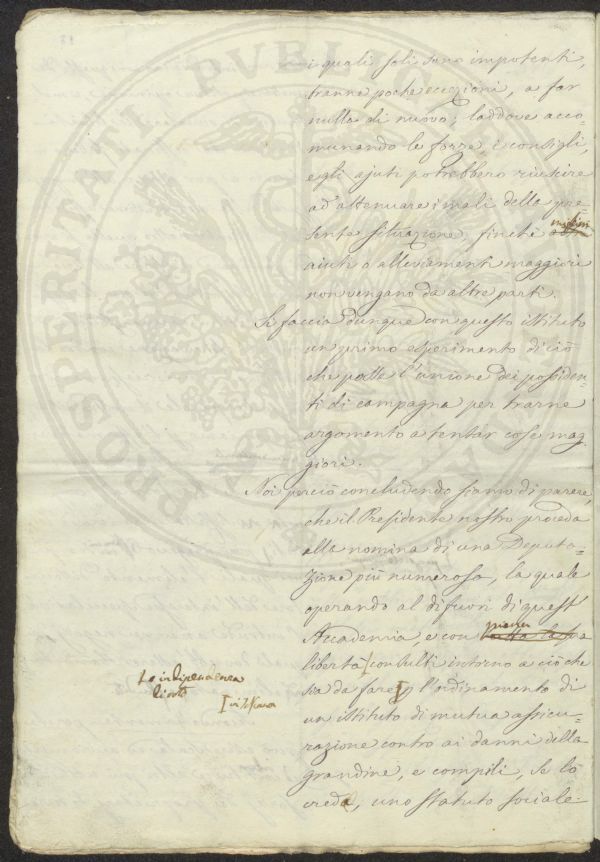 i quali soli sono impotenti,
tranne poche eccezioni, a far
nulla di nuovo; laddove acco=
munando le forze, i consigli,
e gli ajuti potrebbero riuscire
ad attenuare i mali della pre=
sente situazione, finchè
aiuti o alleviamenti maggiori
non vengano da altre parti.
Si faccia dunque con questo istituto
un primo esperimento di ciò
che possa l'unione dei possiden=
ti di campagna per trarne
argomento a tentar cose mag=
giori.
Noi perciò concludendo siamo di parere,
che il Presidente nostro proceda
alla nomina di una Deputa=
zione più numerosa, la quale
operando al di fuori di quest'
Accademia, e con piena
libertà consulti intorno a ciò che
sia da farsi l'ordinamento di
un istituto di mutua assicu=
razione contro ai danni della
grandine, e compili, se lo
creda, uno statuto sociale.
indipendenza
PROSPERITATI PVBLICAE